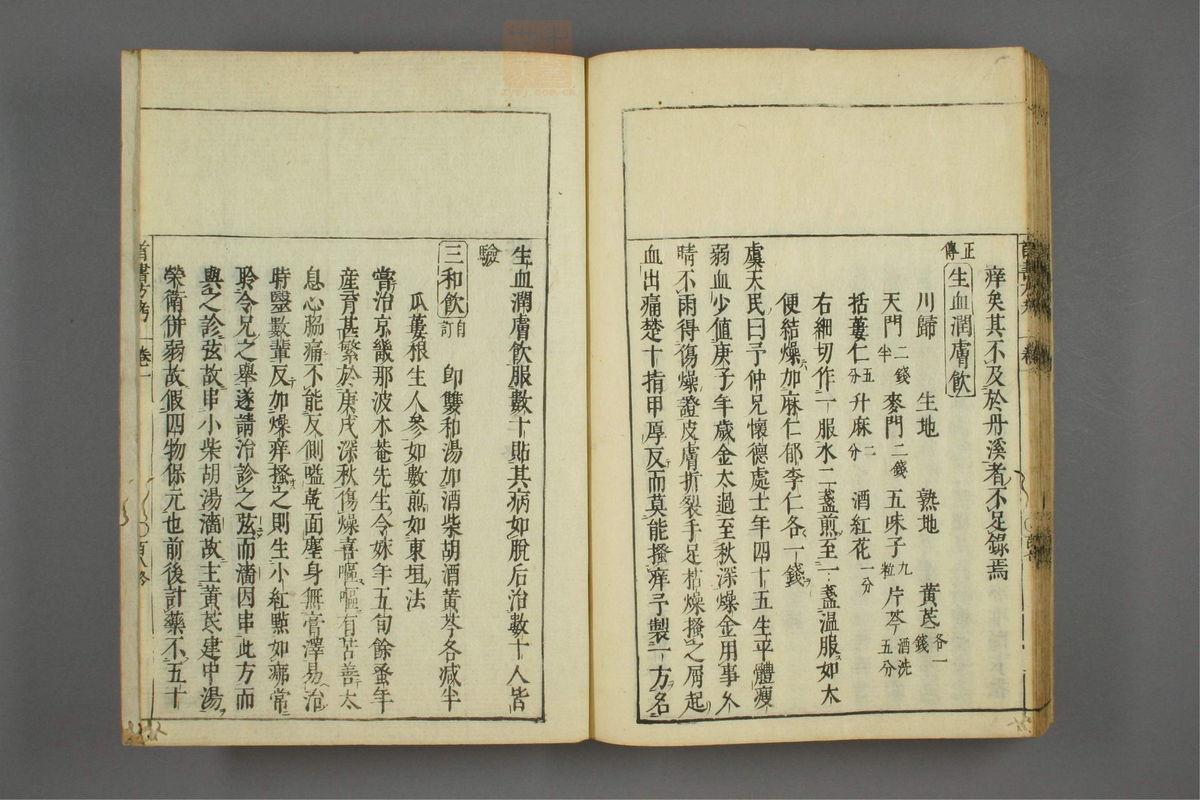 痒矣其不及於丹溪者不足錄焉
正傳 生血潤膚飲
川歸 生地 熟地 黃芪各一錢
天門二錢半 麥門二錢 五味子九粒 片芩酒洗五分
括蔞仁五分 升麻二分 酒紅花一分
右細切作一服水二盞煎至一盞温服如大
便結燥加麻仁郁李仁各一錢
虞天民曰予仲兄懷德處士年四十五生平體瘦
弱血少值庚子年歲金太過至秋深燥金用事久
晴不雨得傷燥證皮膚折裂手足枯燥搔之屑起
血出痛楚十指甲厚反而莫能搔痒予製一方名
生血潤膚飲服數十貼其病如脫后治數十人皆
驗
三和飲 自訂 卽雙和湯加酒柴胡酒黃芩各减半
瓜蔞根生人參如數煎如東垣法
嘗治京畿那波木菴先生令妹年五旬餘蚤年
産育甚繁於庚戌深秋傷燥喜嘔嘔有苦善太
息心脇痛不能反側嗌乾面塵身無膏澤易治
時毉數輩反加燥痒搔之則生小紅㸃如痱常
聆令兄之舉遂請治診之弦而濇因串此方而
與之診弦故串小柴胡湯濇故主黃芪建中湯
榮衛併弱故假四物保元也前後計藥不五十
卷一